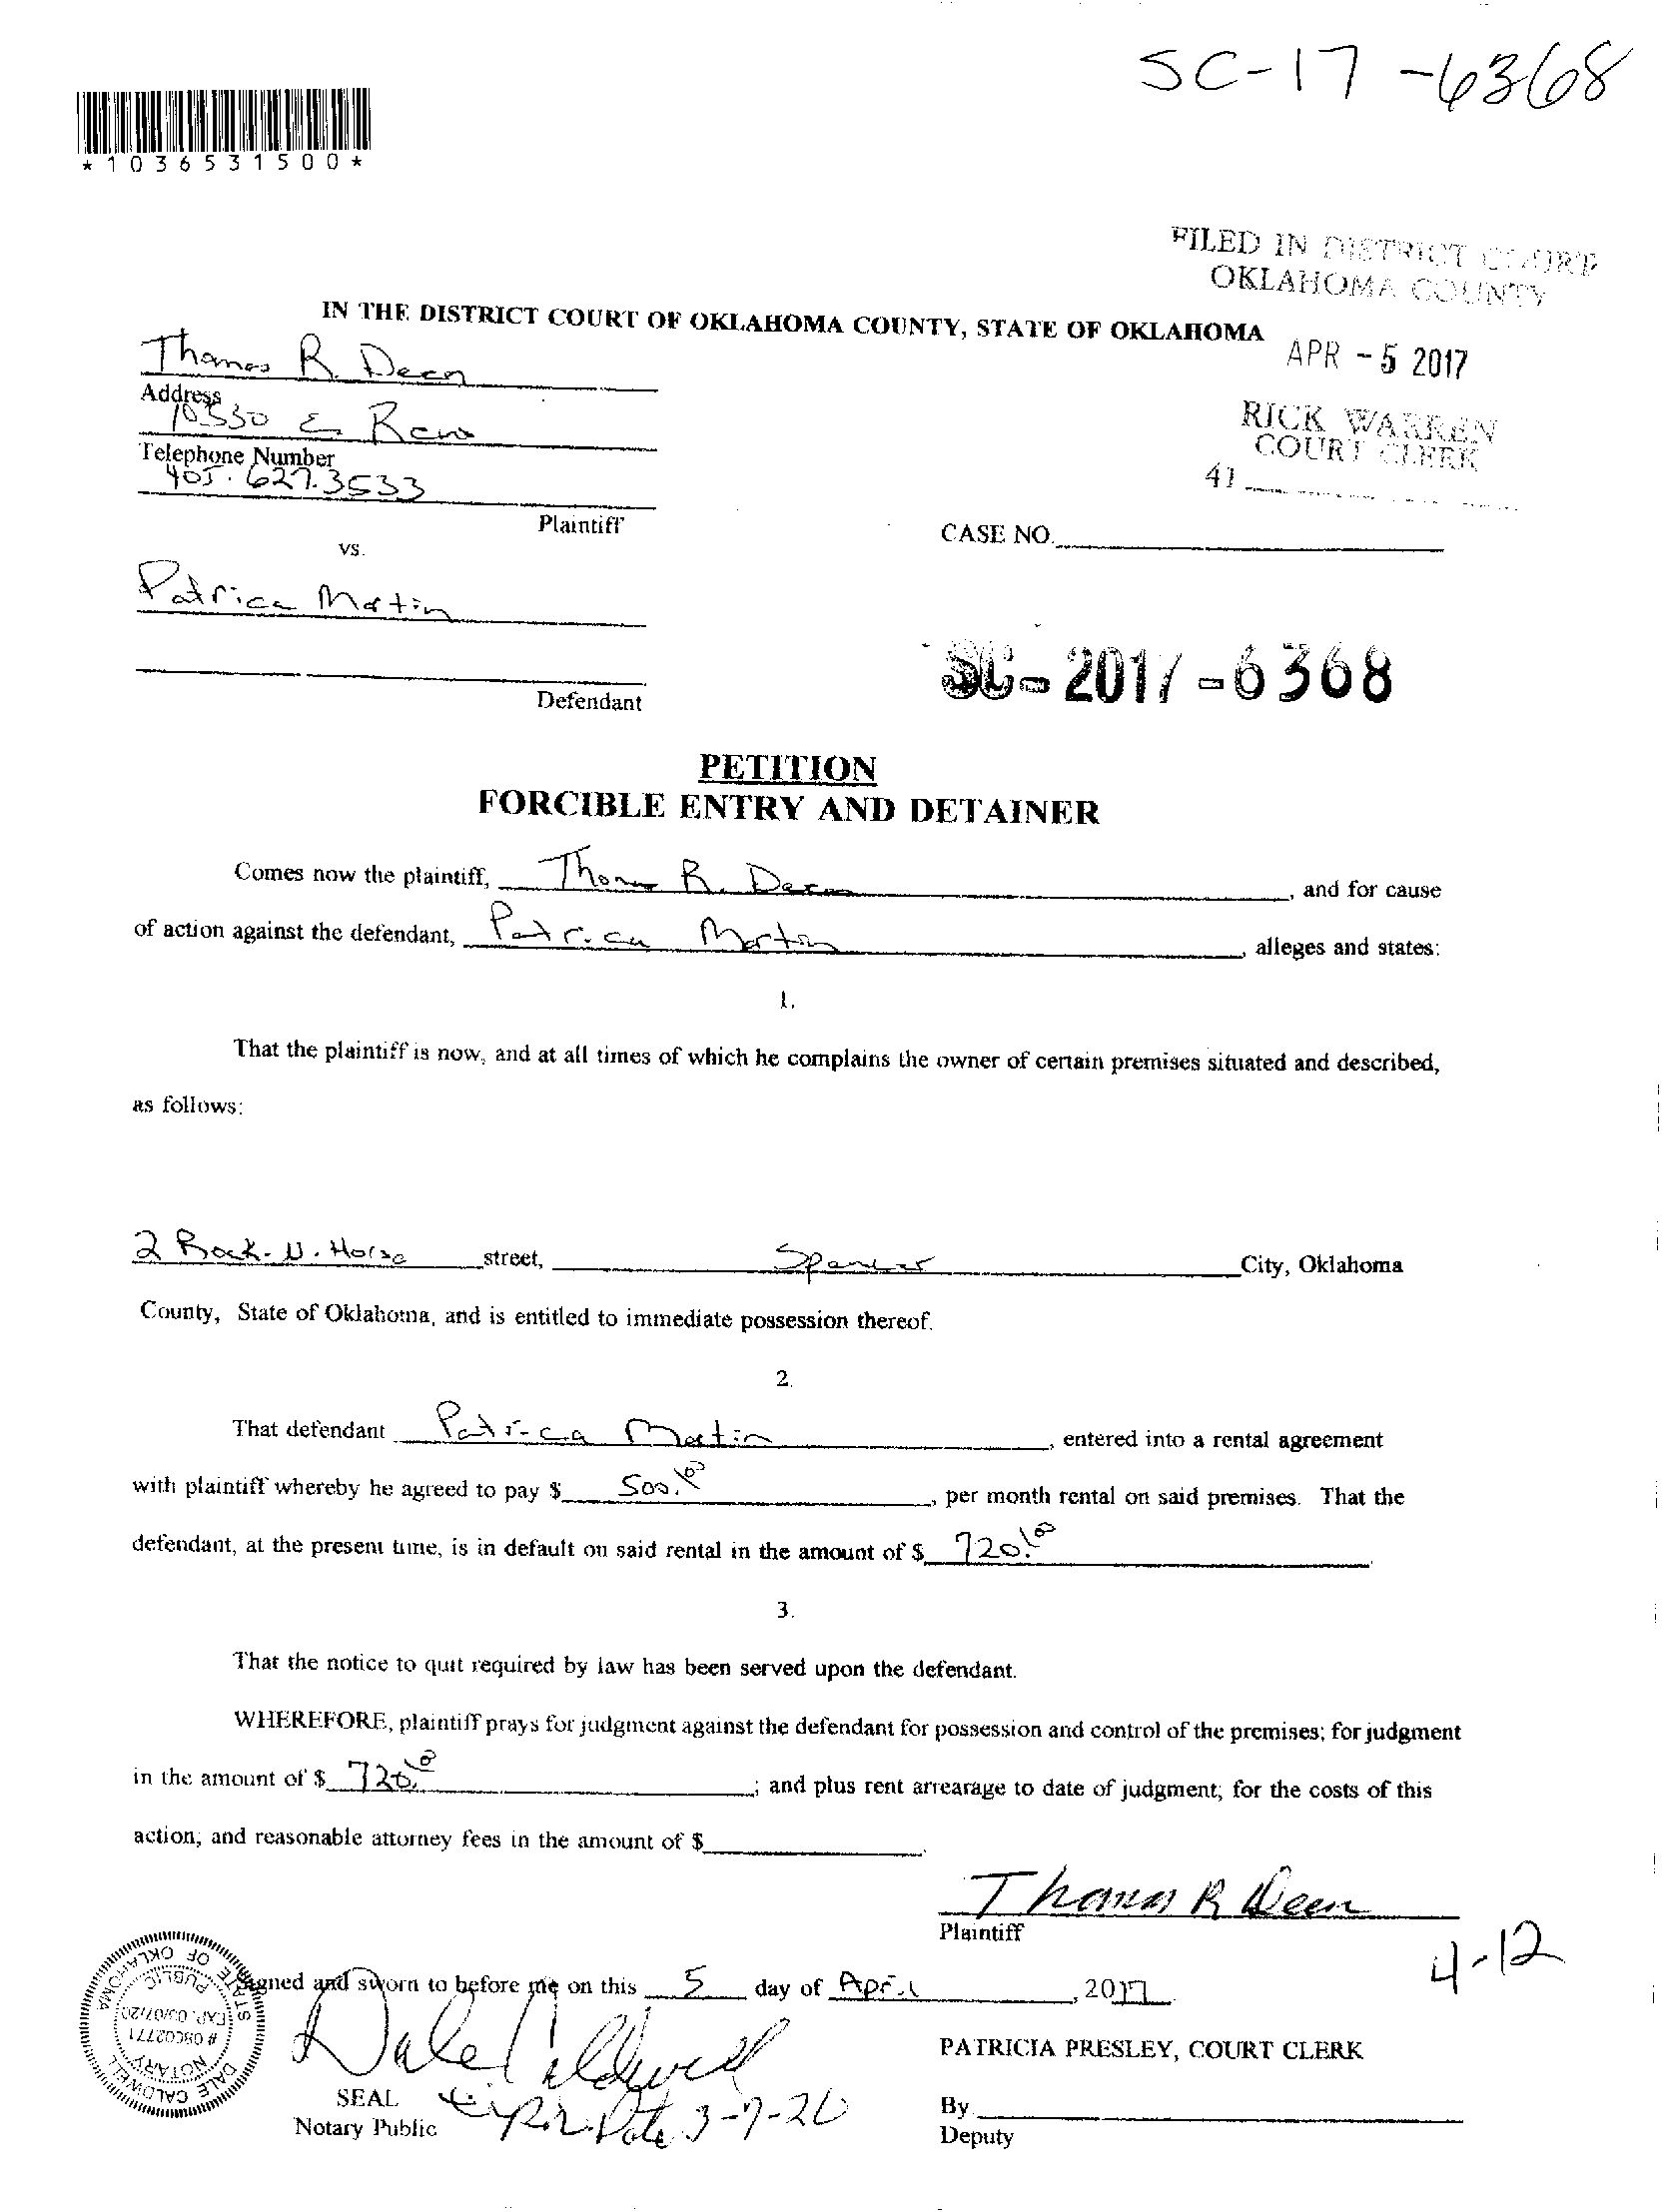 SC-17-6368
*1036531500*
FILED IN DISTRICT COURT
OKLAHOMA COUNTY
IN THE DISTRICT COURT OF OKLAHOMA COUNTY, STATE OF OKLAHOMA
APR - 5 2017
Thomas R. Deen
Address
10530 E Reno
RICK WARREN
COURT CLERK
Telephone Number
405.627.3533
41
Plaintiff
CASE NO.
vs.
Patrica Martin
SC-2017-6368
Defendant
PETITION
FORCIBLE ENTRY AND DETAINER
Comes now the plaintiff, Thomas R. Deen, and for cause
of action against the defendant, Patrica Martin, alleges and states:
1.
That the plaintiff is now, and at all times of which he complains the owner of certain premises situated and described,
as follows:
2 Rock-N-Horse street, Spencer City, Oklahoma
County, State of Oklahoma, and is entitled to immediate possession thereof.
2.
That defendant Patrica Martin, entered into a rental agreement
with plaintiff whereby he agreed to pay $ 500.00, per month rental on said premises. That the
defendant, at the present time, is in default on said rental in the amount of $ 720.00.
3.
That the notice to quit required by law has been served upon the defendant.
WHEREFORE, plaintiff prays for judgment against the defendant for possession and control of the premises; for judgment
in the amount of $ 720.00; and plus rent arrearage to date of judgment; for the costs of this
action; and reasonable attorney fees in the amount of $ .
Thomas R Deen
Plaintiff
4-12
Signed and sworn to before me on this 5 day of April, 2017
DALE CALDWELL
NOTARY PUBLIC
STATE OF OKLAHOMA
# 08002771
EXP. 03/07/20
Dale Caldwell
PATRICIA PRESLEY, COURT CLERK
SEAL
Notary Public
Date 3-7-20
By
Deputy